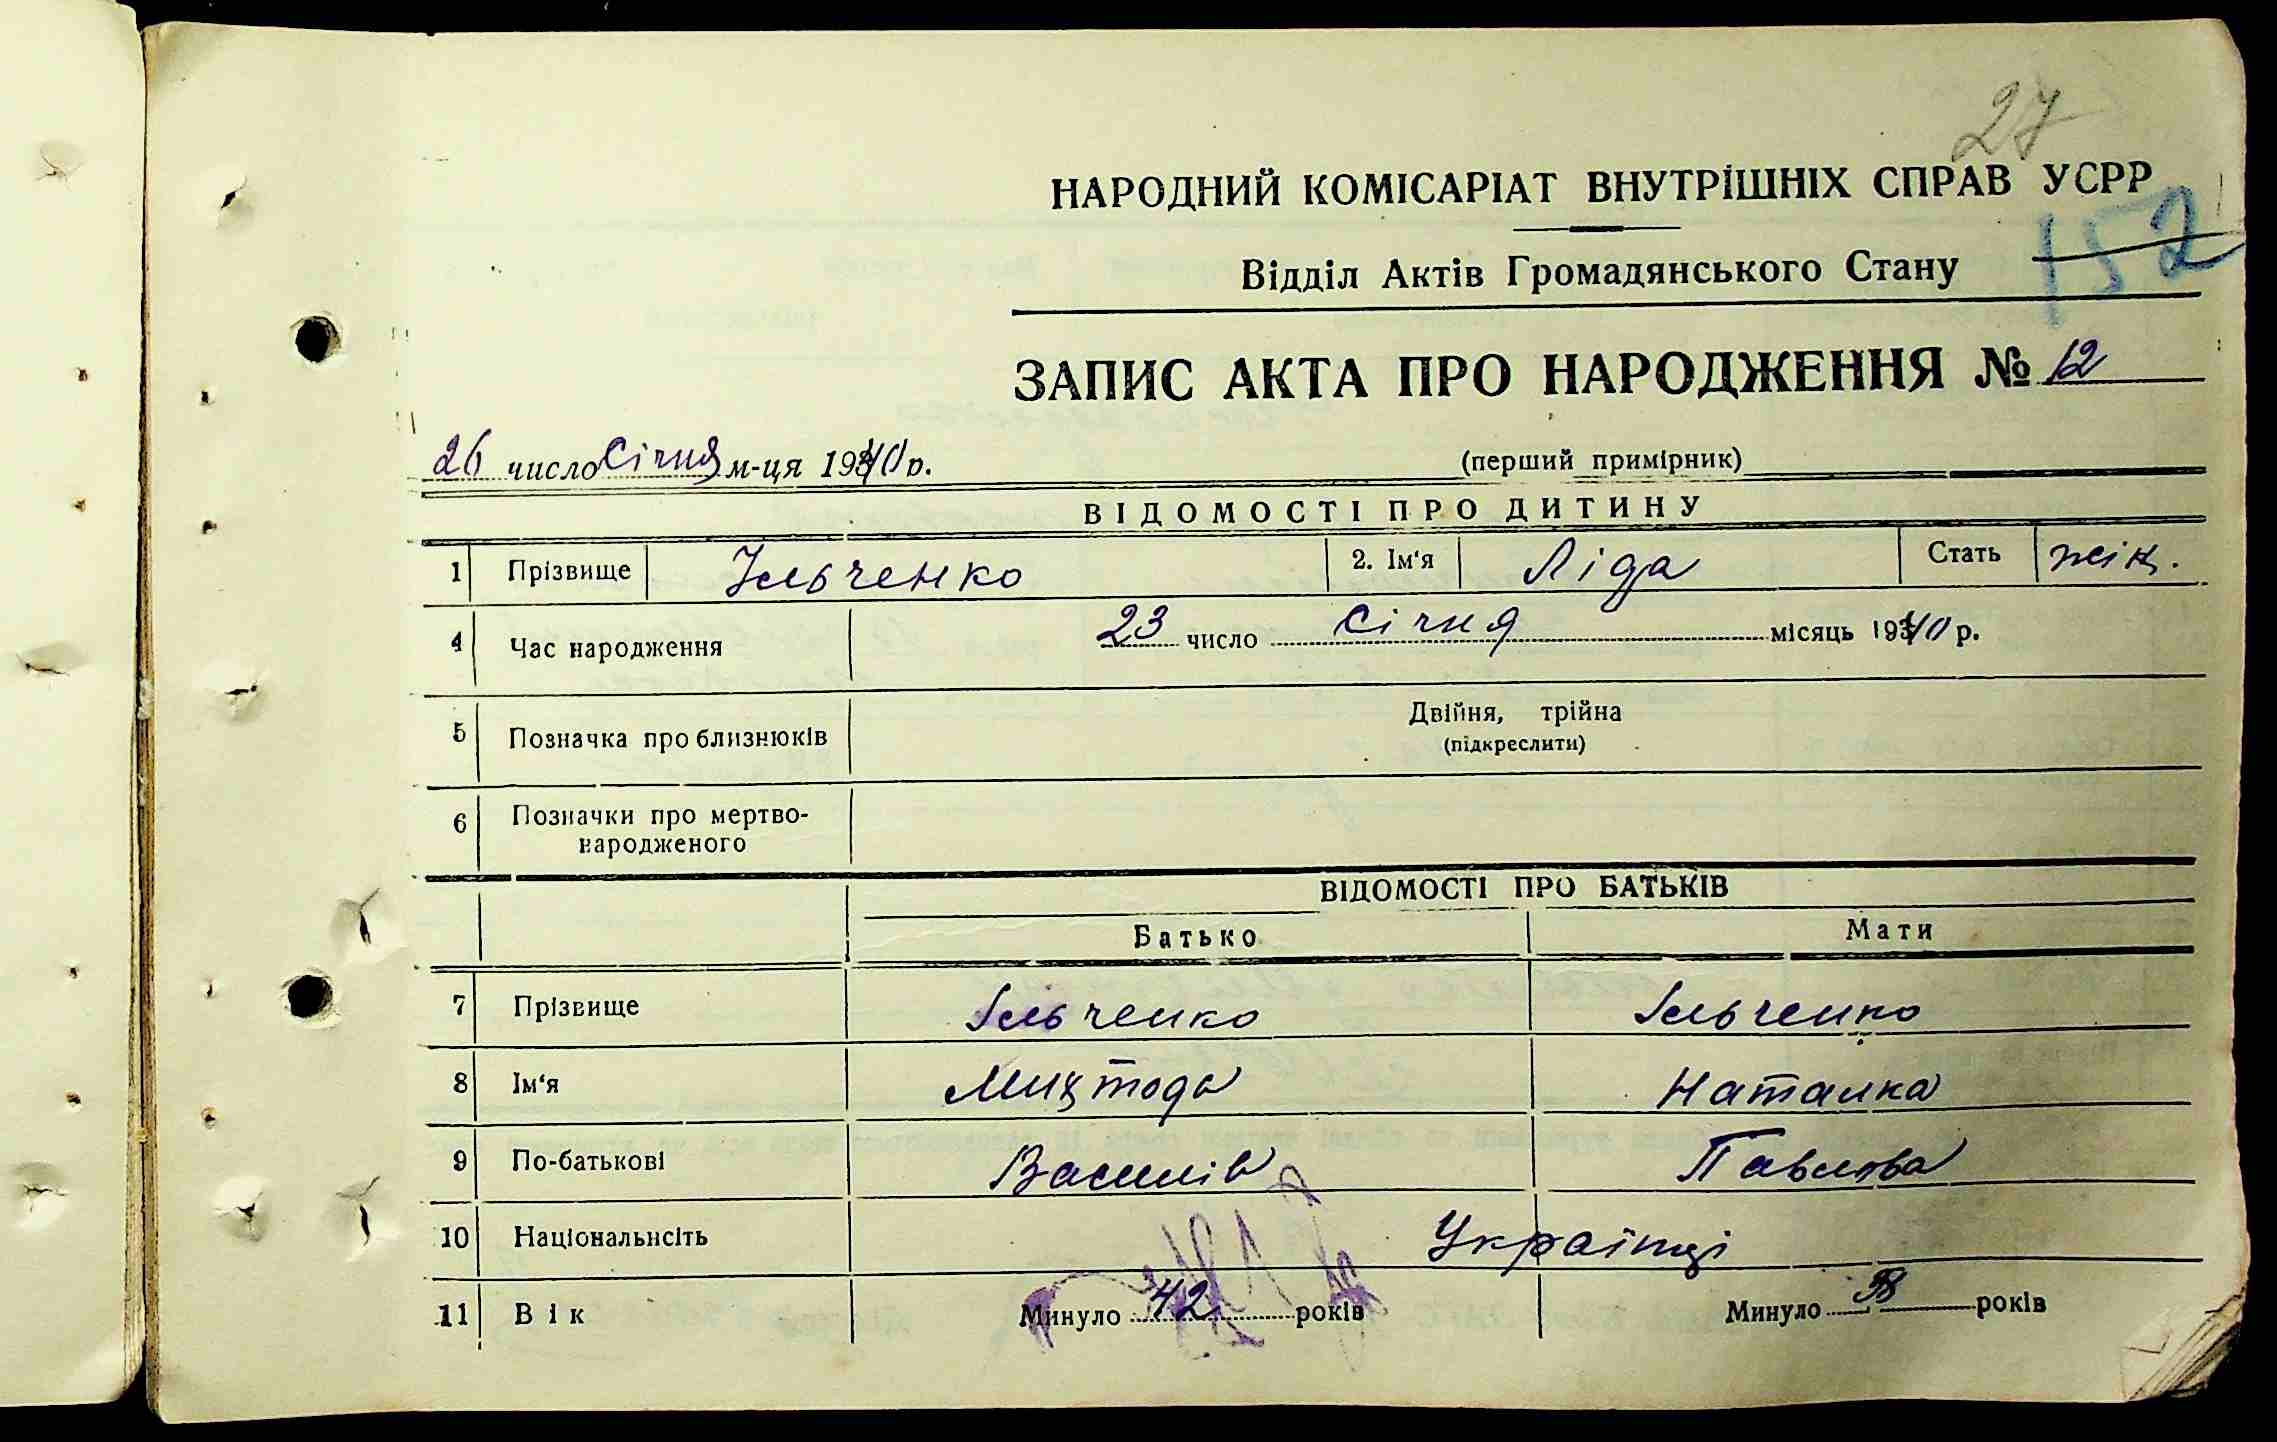 27
НАРОДНИЙ КОМІСАРІАТ ВНУТРІШНІХ СПРАВ УСРР
152
Відділ Актів Громадянського Стану
ЗАПИС АКТА ПРО НАРОДЖЕННЯ № 12
26 число Січня м-ця 1940 р. (перший примірник)
ВІДОМОСТІ ПРО ДИТИНУ
1 Прізвище Ільченко 2. Ім'я Ліда Стать жін.
4 Час народження 23 число Січня місяць 1940 р.
5 Позначка про близнюків Двійня, трійна
(підкреслити)
6 Позначки про мертво-
народженого
ВІДОМОСТІ ПРО БАТЬКІВ
Батько Мати
7 Прізвище Ільченко Ільченко
8 Ім'я Наталка
9 По-батькові Василів Павлова
10 Національнсіть Українці
11 Вік Минуло 42 років Минуло 38 років